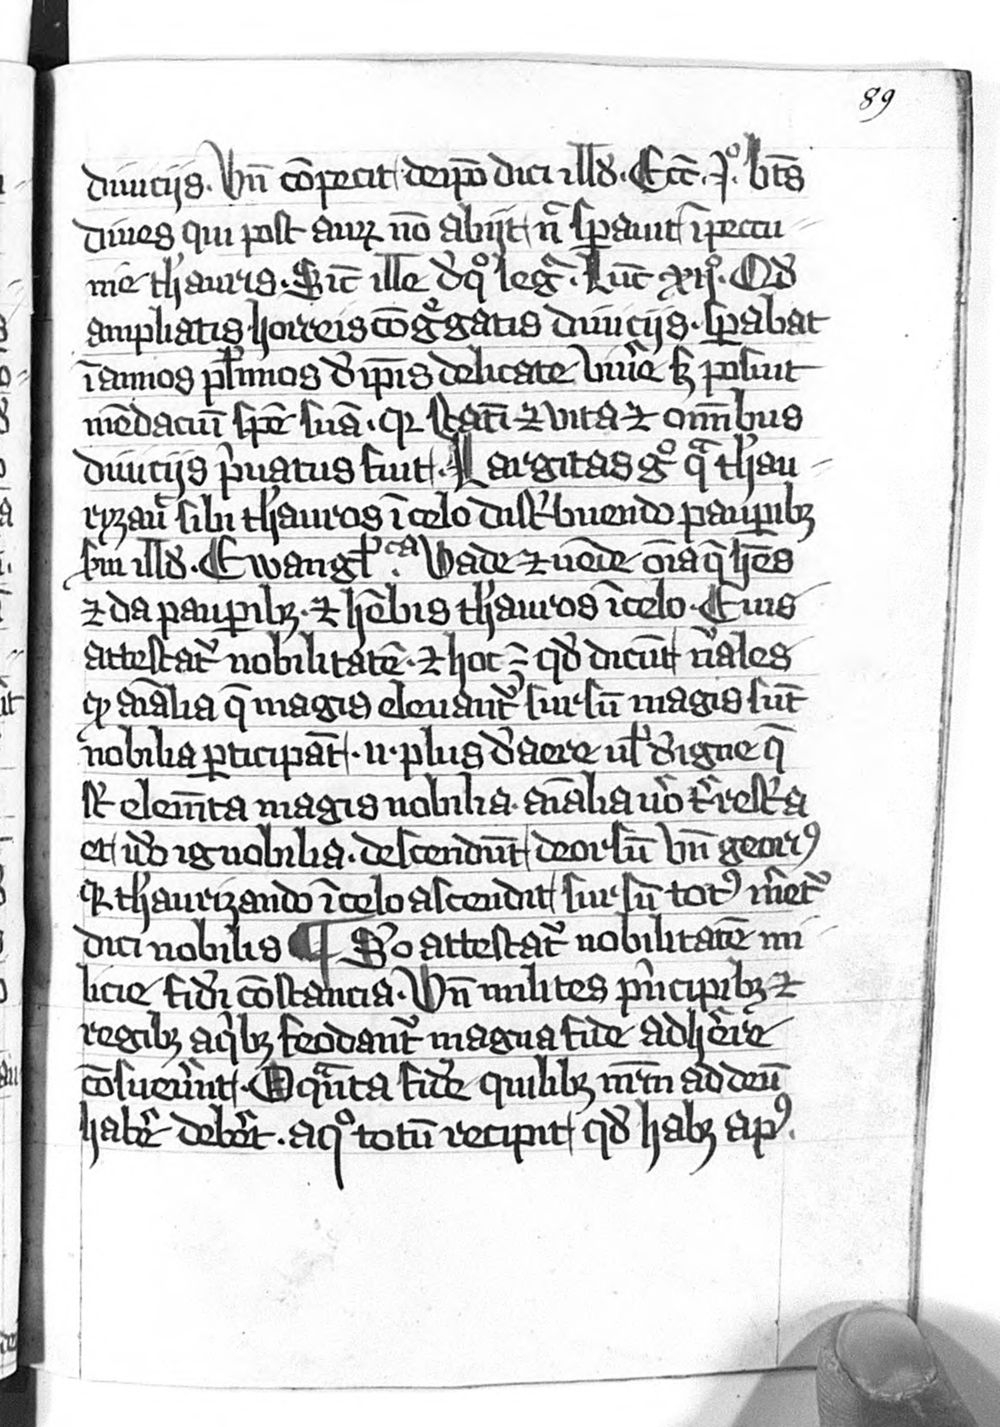 89
diuicijs. Vn̄ cōpecit deip̄o dici ill̄d. Ecc̄. iͦ. bt̄s
diues qui post auꝝ nō abijt n̄ sꝑauit ī pecu
nie th̓auris. Sic̄ ille d̓ qͦ leḡ. Luc̄ xijͦ. Qd̓
ampliatis horreis cōgͦgatis diuicijs. sꝑabat
ī annos pl̓imos d̓ ip̄is delicate viuͤe sꝫ posuit
mēdaciū spē suā. qꝛ statī ⁊ vita ⁊ omībus
diuicijs p̓uatus fuit. Largitas gͦ qͣ th̓au
ryzauͭ sibi th̓auros ī celo dist̓buendo pauꝑibꝫ
sm ill̄d. Ewangl̓ᶜᵃ. Vade ⁊ uēde oīa q̄ hēs
⁊ da pauꝑibꝫ. ⁊ hēbis th̓auros ī celo. Eius
attestat᷑ nobilitatē. ⁊ hoc ꝫ̄ qd̓ dicūt n̓ales
ꝙ aīalia q̄ magis eleuant᷑ sursū magis sūt
nobilia ꝑticipāt. n. plus d̓ aere ul̓ d̓ igne q̄
st̄ elem̄ta magis nobilia. aīalia u̓o t̓rest̓a
et iō ignobilia. descendūt deorsū vn̄ georꝰ
qꝛ th̓aurizando ī celo ascendit sursū totꝰ m̓et᷑
dici nobilis ¶ Sͦo attestat᷑ nobilitatē mi
licie fid̓i cōstancia. Vn̄ milites p̓ncipibꝫ ⁊
regibꝫ a qͥbꝫ feodant᷑ magna fide adhe̓re
cōsueue̓nt. O qͣnta fid̓e quilibꝫ nr̄m ad deū
habe̓ debe̓t. a qͦ totū recipit qd̓ habꝫ apꝰ.